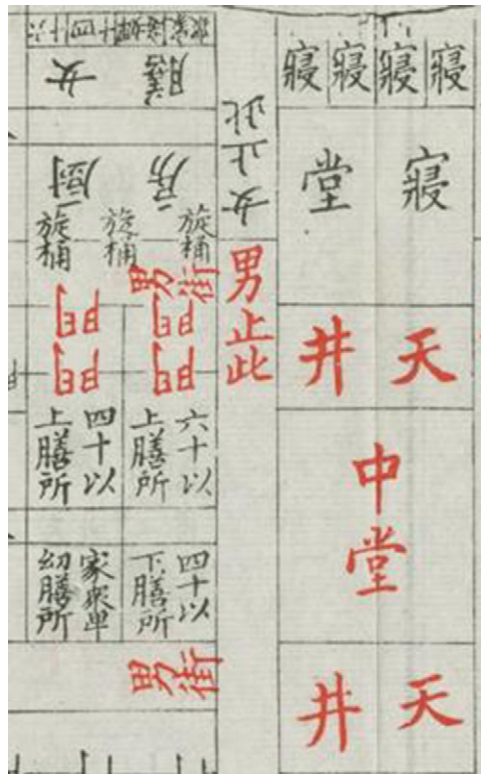 寢寢寢寢
寢堂
天井
中堂
天井
女止此
男止此
女膳
厨房
旋桶
旋桶
旋桶
男街
門門
門門
六十以
上膳所
四十以
上膳所
四十以
下膳所
家眾卑
幼膳所
男街